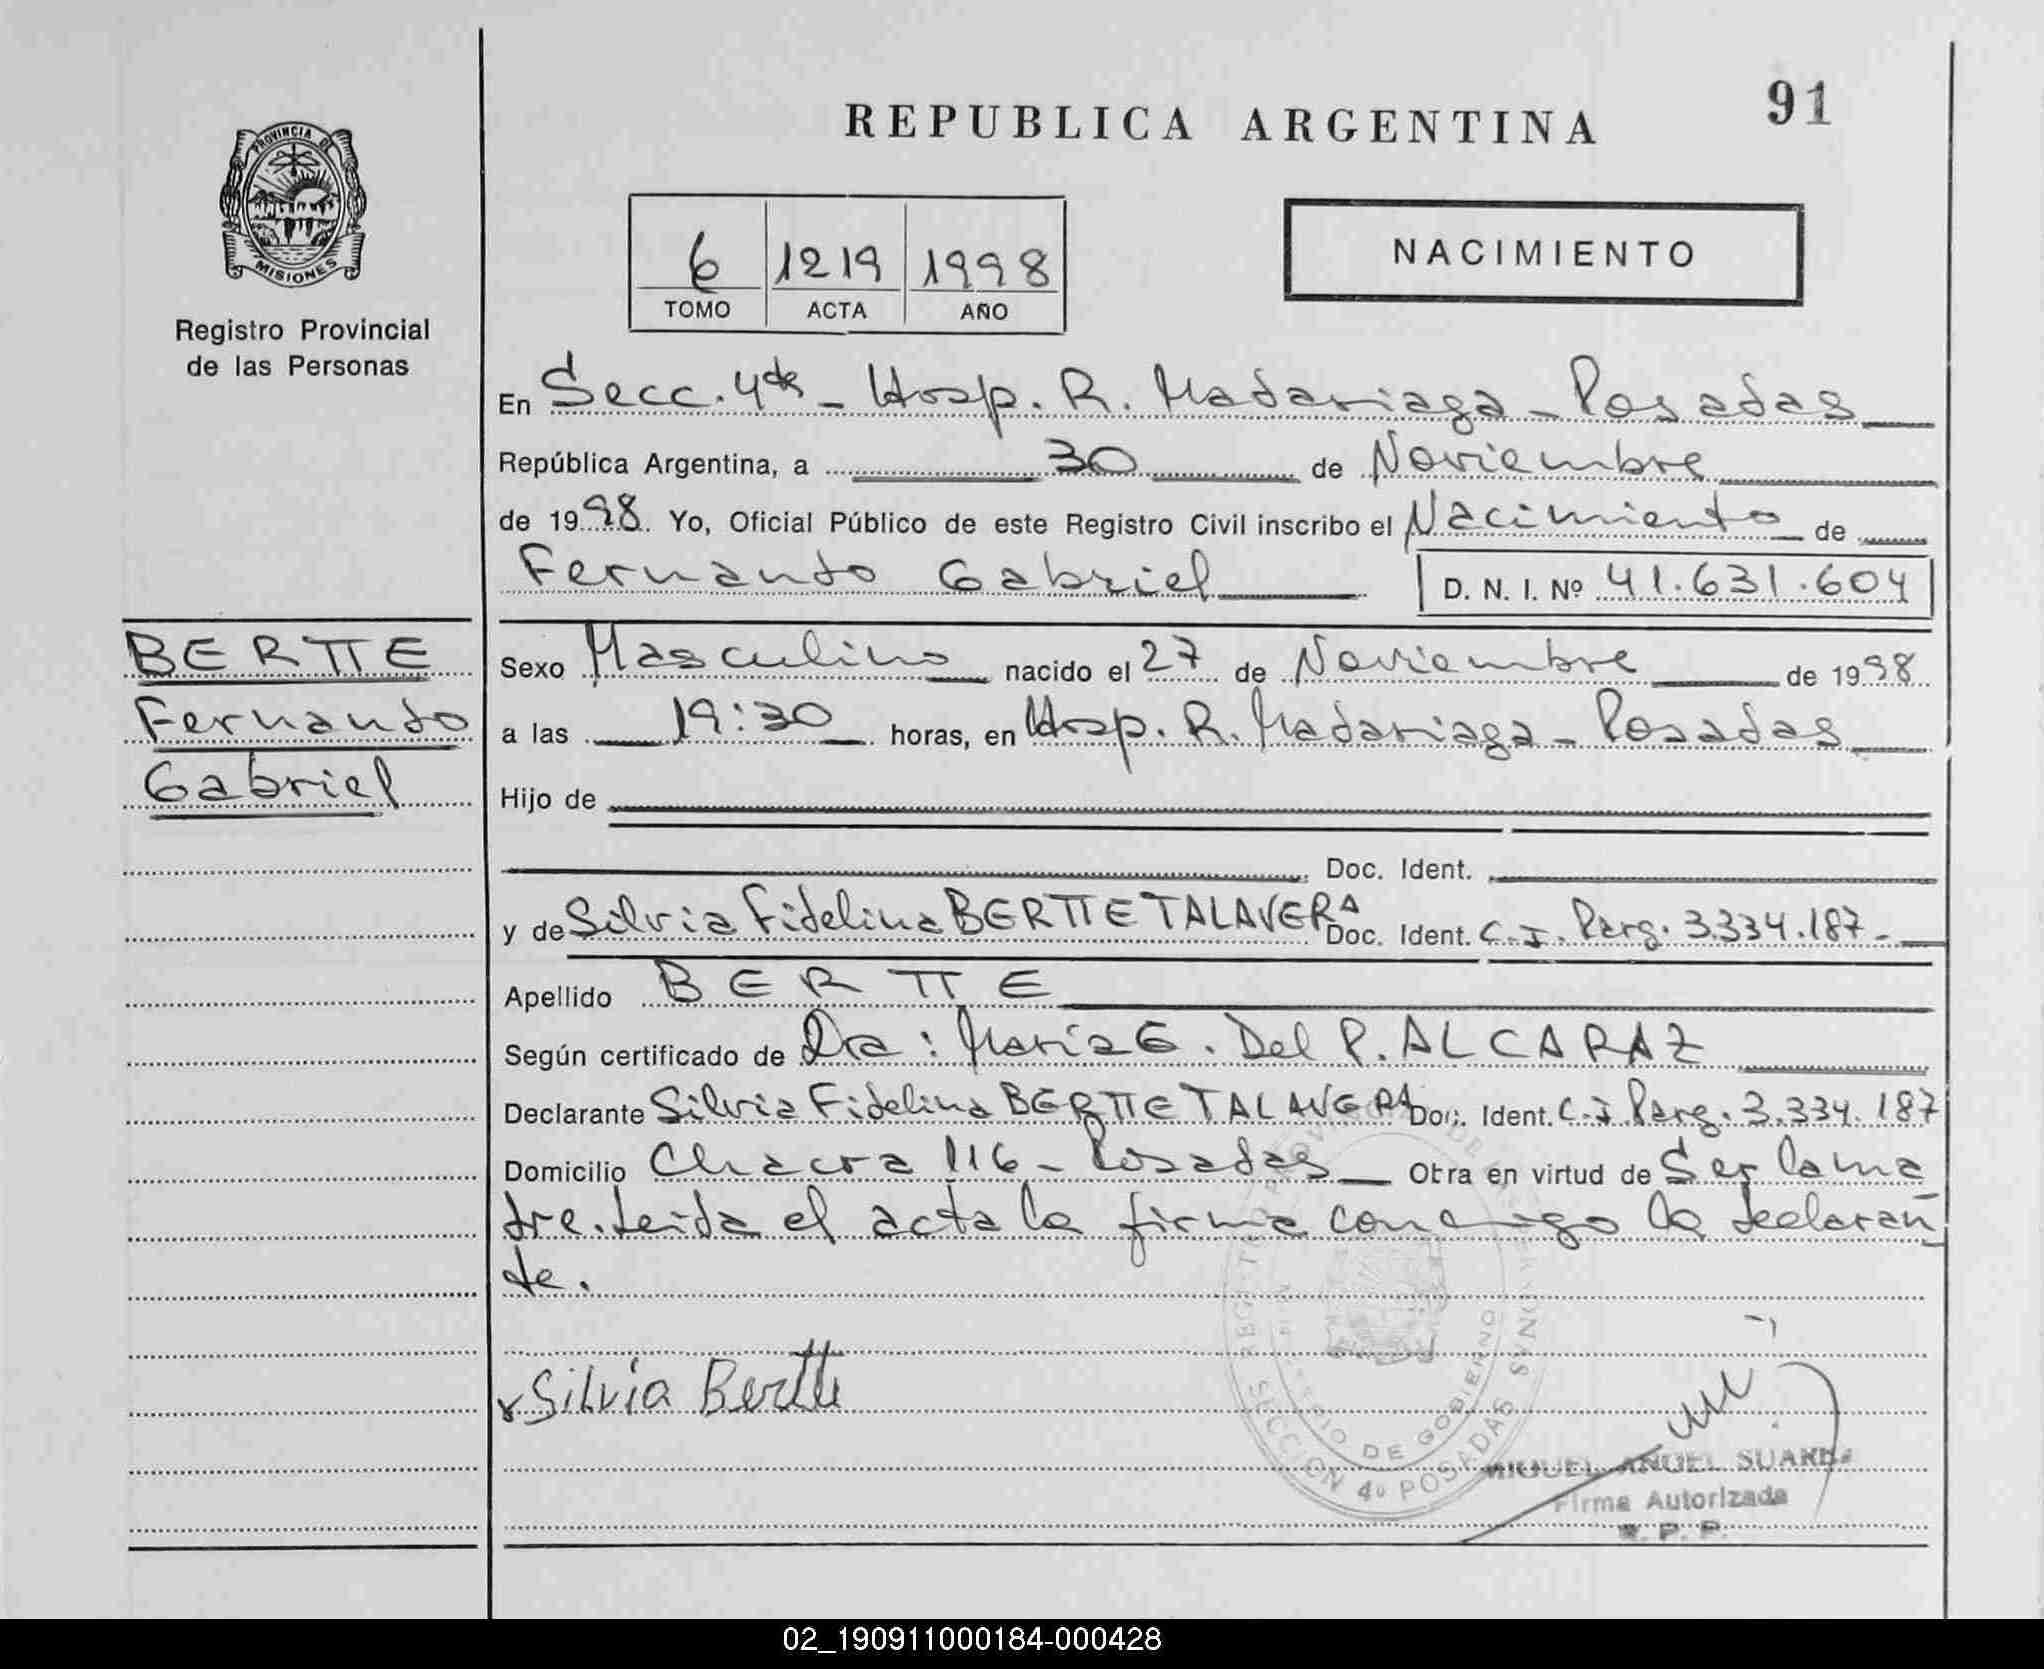 REPUBLICA ARGENTINA
91
PROVINCIA DE
MISIONES
Registro Provincial
de las Personas
6 1219 1998
TOMO ACTA AÑO
NACIMIENTO
En Secc. 4ta - Hosp. R. Madariaga - Posadas
República Argentina, a 30 de Noviembre
de 1998. Yo, Oficial Público de este Registro Civil inscribo el Nacimiento de
Fernando Gabriel
D. N. I. Nº 41.631.604
BERTTE
Fernando
Gabriel
Sexo Masculino nacido el 27 de Noviembre de 1998
a las 19:30 horas, en Hosp. R. Madariaga - Posadas
Hijo de
Doc. Ident.
y de Silvia Fidelina BERTTE TALAVERA Doc. Ident. C.I. Parg. 3.334.187-
Apellido BERTTE
Según certificado de Dra: María G. Del P. ALCARAZ
Declarante Silvia Fidelina BERTTE TALAVERA Doc. Ident. C.I. Parg. 3.334.187
Domicilio Chacra 116 - Posadas Otra en virtud de Ser la ma
dre. Leida el acta la firma conmigo la declaran
te.
Silvia Bertte
SECCION 4º POSADAS
DE GOBIERNO
MIGUEL ANGEL SUAREZ
Firma Autorizada
R. P. P.
02_190911000184-000428